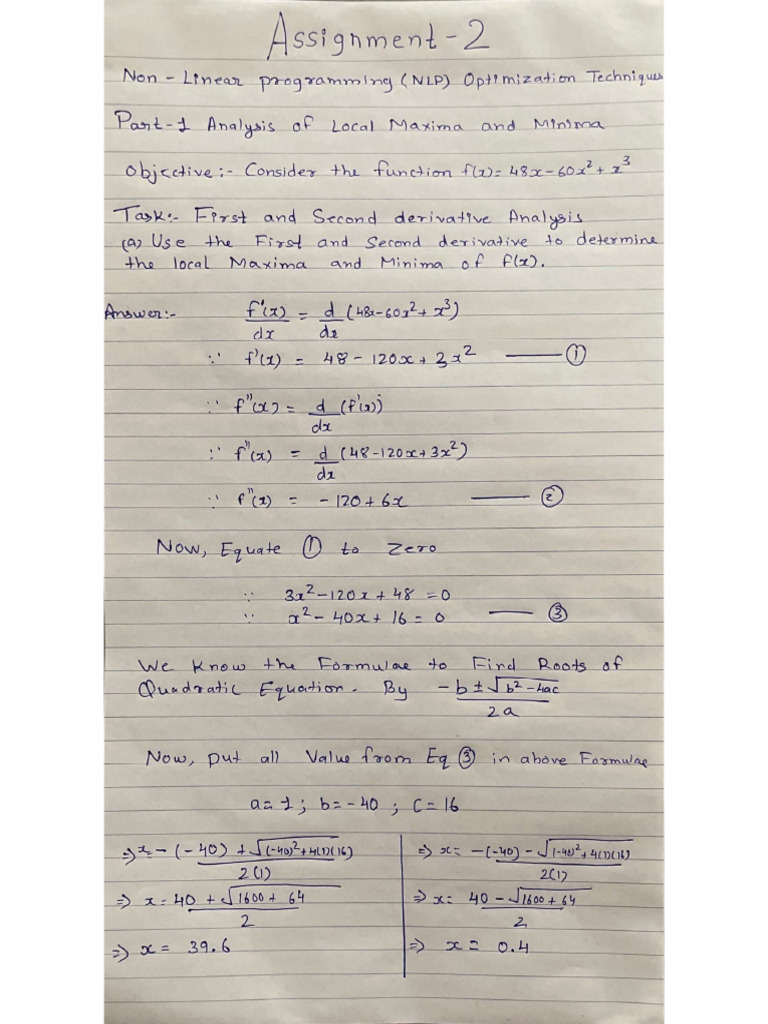 Assignment-2
Non-Linear programming (NLP) Optimization Techniques
Part-1 Analysis of Local Maxima and Minima
Objective:- Consider the function f(x)= 48x-60x²+x³
Task:- First and Second derivative Analysis
(a) Use the First and Second derivative to determine
the local Maxima and Minima of f(x).
Answer:- f'(x)/dx = d/dx (48x-60x²+x³)
∵ f'(x) = 48-120x+3x² —— ①
∵ f''(x) = d/dx (f'(x))
∵ f''(x) = d/dx (48-120x+3x²)
∵ f''(x) = -120+6x —— ②
Now, Equate ① to zero
∵ 3x²-120x+48=0
∵ x²-40x+16=0 —— ③
We know the Formulae to Find Roots of
Quadratic Equation. By -b±√b²-4ac/2a
Now, put all Value from Eq ③ in above Formulae
a=1; b=-40; C=16
⇒ x= -(-40)+√(-40)²+4(1)(16)/2(1)
⇒ x= 40+√1600+64/2
⇒ x= 39.6
⇒ x= -(-40)-√(-40)²+4(1)(16)/2(1)
⇒ x= 40-√1600+64/2
⇒ x= 0.4